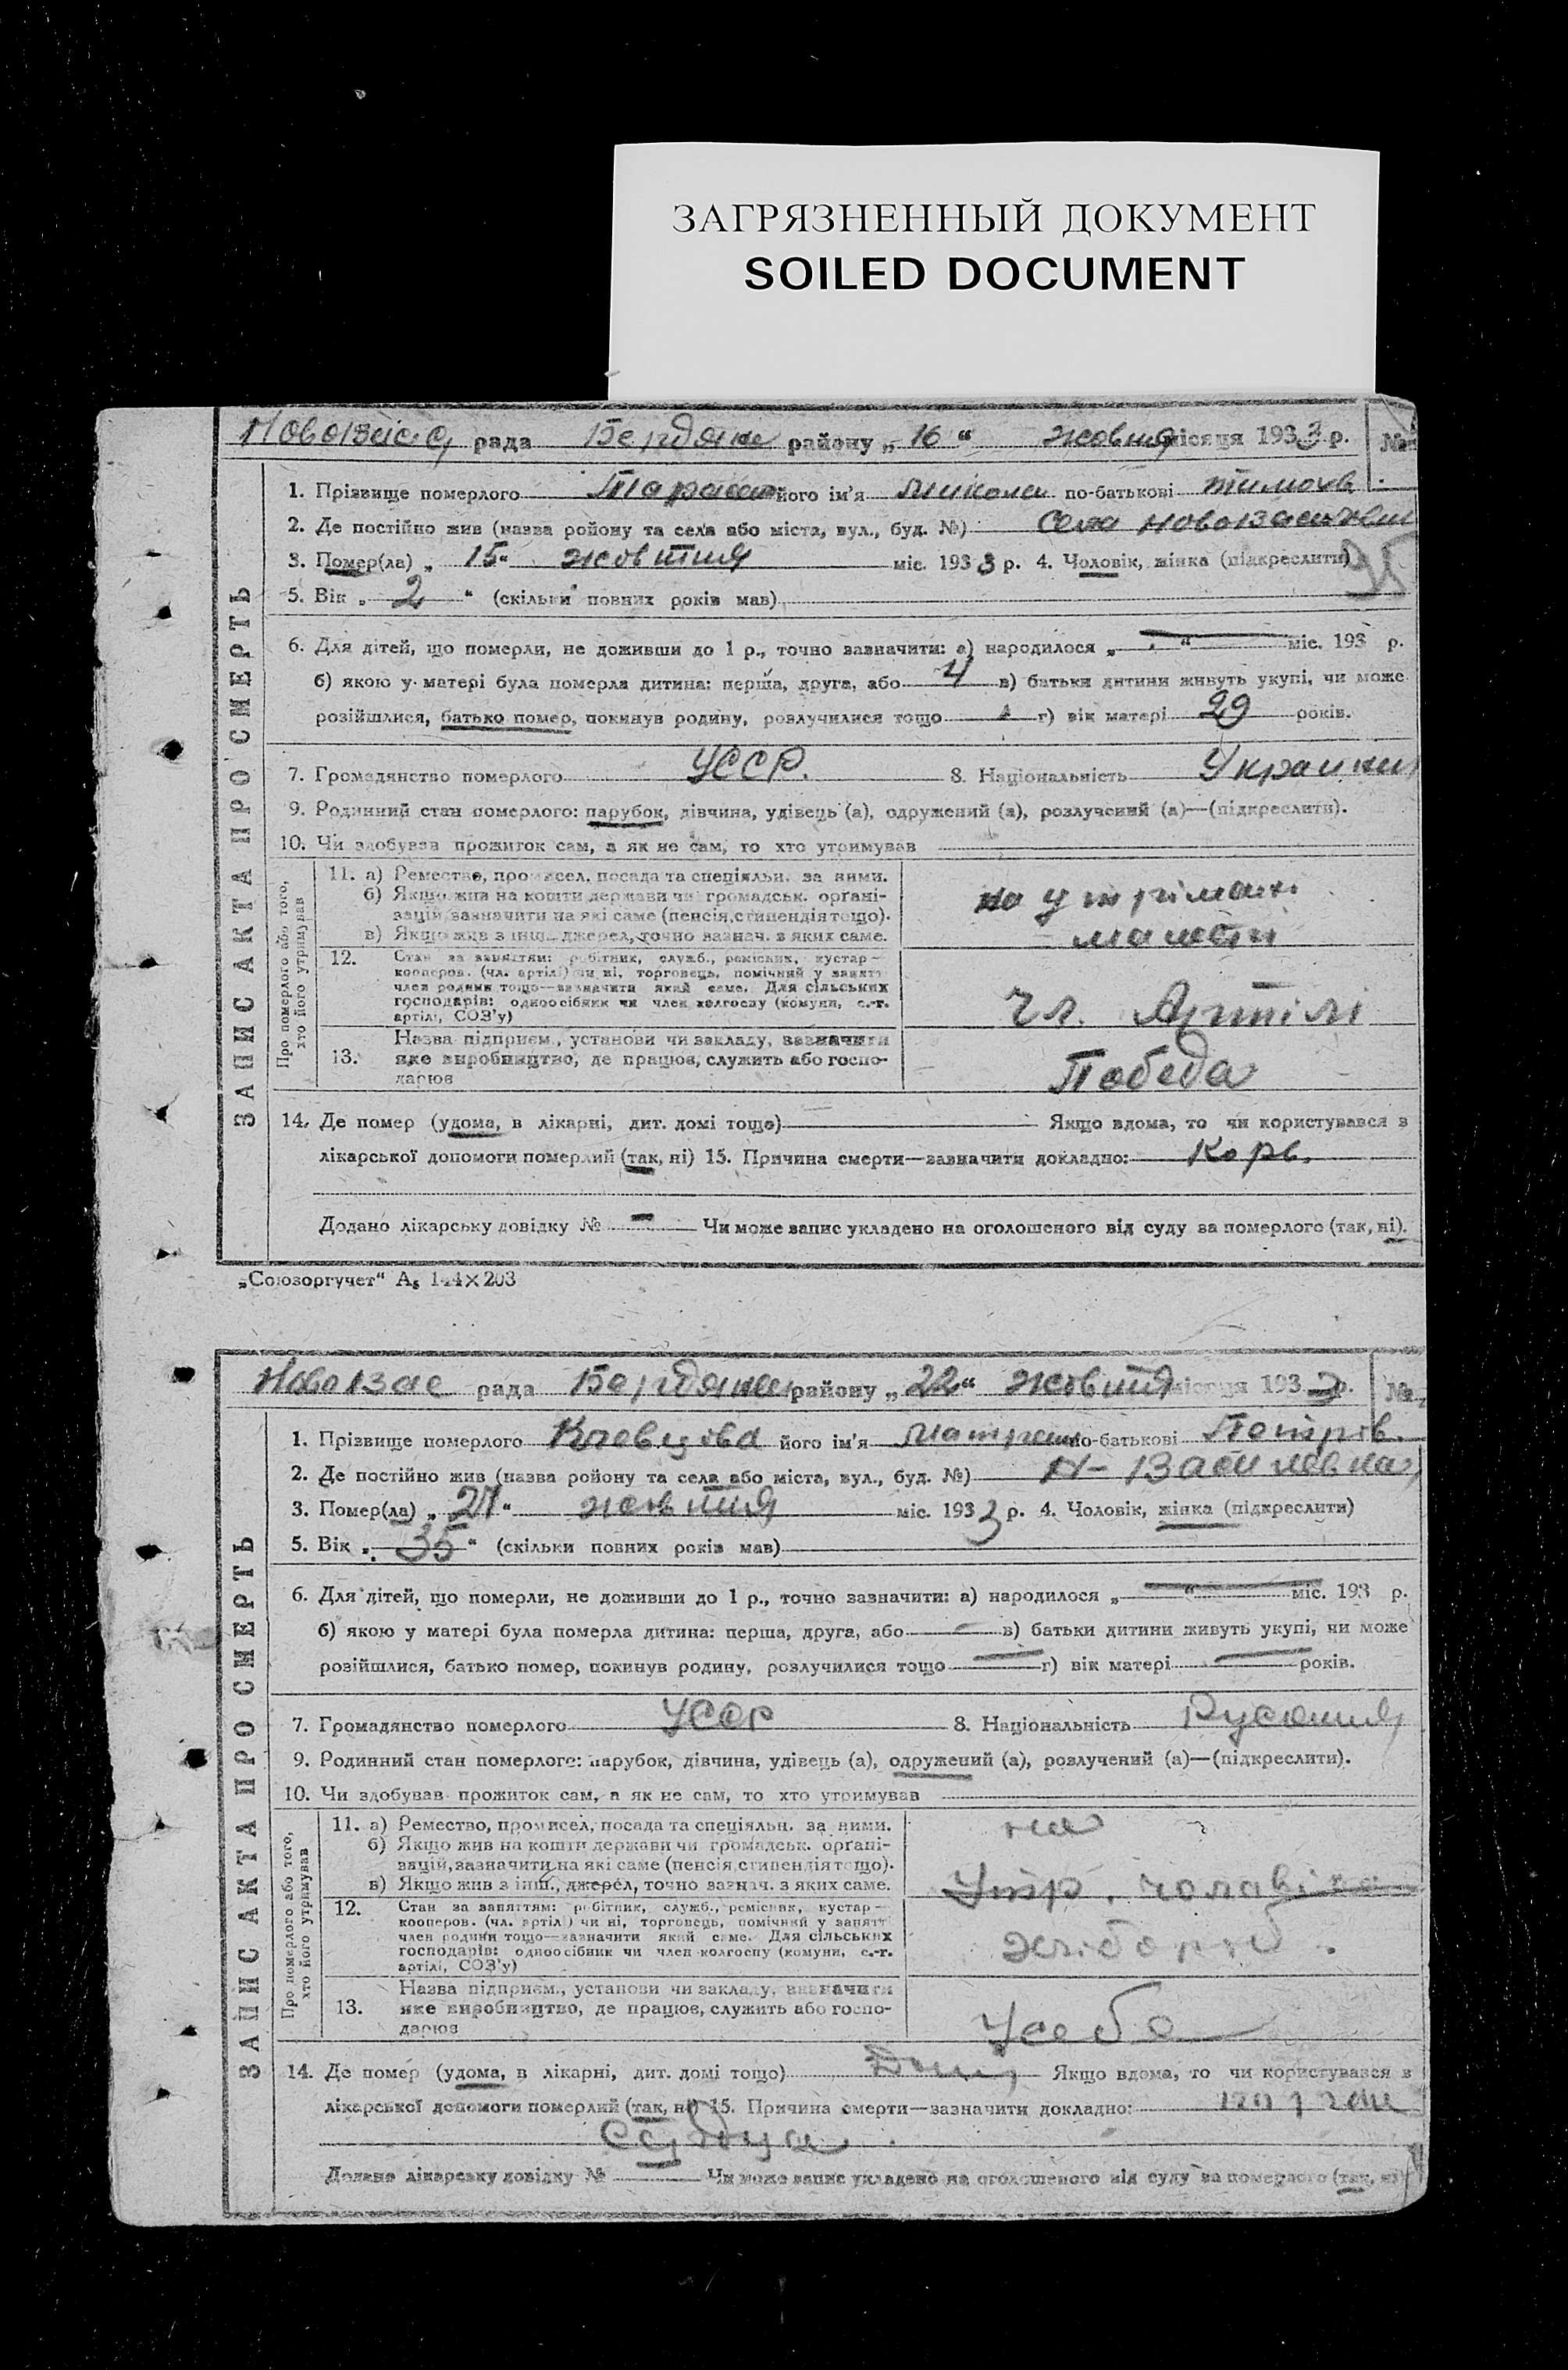 ЗАГРЯЗНЕННЫЙ ДОКУМЕНТ
SOILED DOCUMENT
рада району „ 16 “ місяця 1933 р. №
ЗАПИС АКТА ПРО СМЕРТЬ
1. Прізвище померлого його ім'я Микола по-батькові Тимохв
2. Де постійно жив (назва ройону та села або міста, вул., буд. №) Села
3. Помер(ла) „ 15 “ жовтня міс. 1933 р. 4. Чоловік, жінка (підкреслити)
5. Вік „ 2 “ (скільки повних років мав)
6. Для дітей, що померли, не доживши до 1 р., точно зазначити: а) народилося „ “ міс. 193 р.
б) якою у матері була померла дитина: перша, друга, або 4 в) батьки дитини живуть укупі, чи може
розійшлися, батько помер, покинув родину, розлучилися тощо г) вік матері 29 років.
7. Громадянство померлого УССР. 8. Національність
9. Родинний стан померлого: парубок, дівчина, удівець (а), одружений (а), розлучений (а)—(підкреслити).
10. Чи здобував прожиток сам, а як не сам, то хто утримував
Про померлого або того, хто його утримував
11. а) Ремество, промисел, посада та спеціяльн. за ними.
б) Якщо жив на кошти держави чи громадськ. органі-
зацій, зазначити на які саме (пенсія, стипендія тощо).
в) Якщо жив з інш. джерел, точно зазнач. з яких саме.
на
12. Стан за заняттям: робітник, служб., ремісник, кустар—
кооперов. (чл. артілі) чи ні, торговець, помічний у занятт
член родини тощо—зазначити який саме. Для сільських
господарів: одноосібник чи член колгоспу (комуни, с.-г.
артілі, СОЗ'у)
чл. Артілі
13. Назва підприєм., установи чи закладу, зазначити
яке виробництво, де працює, служить або госпо-
дарює
Победа
14. Де помер (удома, в лікарні, дит. домі тощо) Якщо вдома, то чи користувався в
лікарської допомоги померлий (так, ні) 15. Причина смерти—зазначити докладно: Корь.
Додано лікарську довідку № — Чи може запис укладено на оголошеного від суду за померлого (так, ні).
„Союзоргучет“ А₅ 144×203
рада району „ 22 “ жовтня місяця 1933 р. №
ЗАПИС АКТА ПРО СМЕРТЬ
1. Прізвище померлого його ім'я по-батькові Петрів.
2. Де постійно жив (назва ройону та села або міста, вул., буд. №)
3. Помер(ла) „ 21 “ жовтня міс. 1933 р. 4. Чоловік, жінка (підкреслити)
5. Вік „ 35 “ (скільки повних років мав)
6. Для дітей, що померли, не доживши до 1 р., точно зазначити: а) народилося „ “ міс. 193 р.
б) якою у матері була померла дитина: перша, друга, або — в) батьки дитини живуть укупі, чи може
розійшлися, батько помер, покинув родину, розлучилися тощо — г) вік матері — років.
7. Громадянство померлого УССР 8. Національність
9. Родинний стан померлого: парубок, дівчина, удівець (а), одружений (а), розлучений (а)—(підкреслити).
10. Чи здобував прожиток сам, а як не сам, то хто утримував
Про померлого або того, хто його утримував
11. а) Ремество, промисел, посада та спеціяльн. за ними.
б) Якщо жив на кошти держави чи громадськ. органі-
зацій, зазначити на які саме (пенсія, стипендія тощо).
в) Якщо жив з інш. джерел, точно зазнач. з яких саме.
на
Утр. чоловіка
12. Стан за заняттям: робітник, служб., ремісник, кустар—
кооперов. (чл. артілі) чи ні, торговець, помічний у занятт
член родини тощо—зазначити який саме. Для сільських
господарів: одноосібник чи член колгоспу (комуни, с.-г.
артілі, СОЗ'у)
13. Назва підприєм., установи чи закладу, зазначити
яке виробництво, де працює, служить або госпо-
дарює
У себе
14. Де помер (удома, в лікарні, дит. домі тощо) Якщо вдома, то чи користувався в
лікарської допомоги померлий (так, ні) 15. Причина смерти—зазначити докладно:
Додано лікарську довідку № Чи може запис укладено на оголошеного від суду за померлого (так, ні)